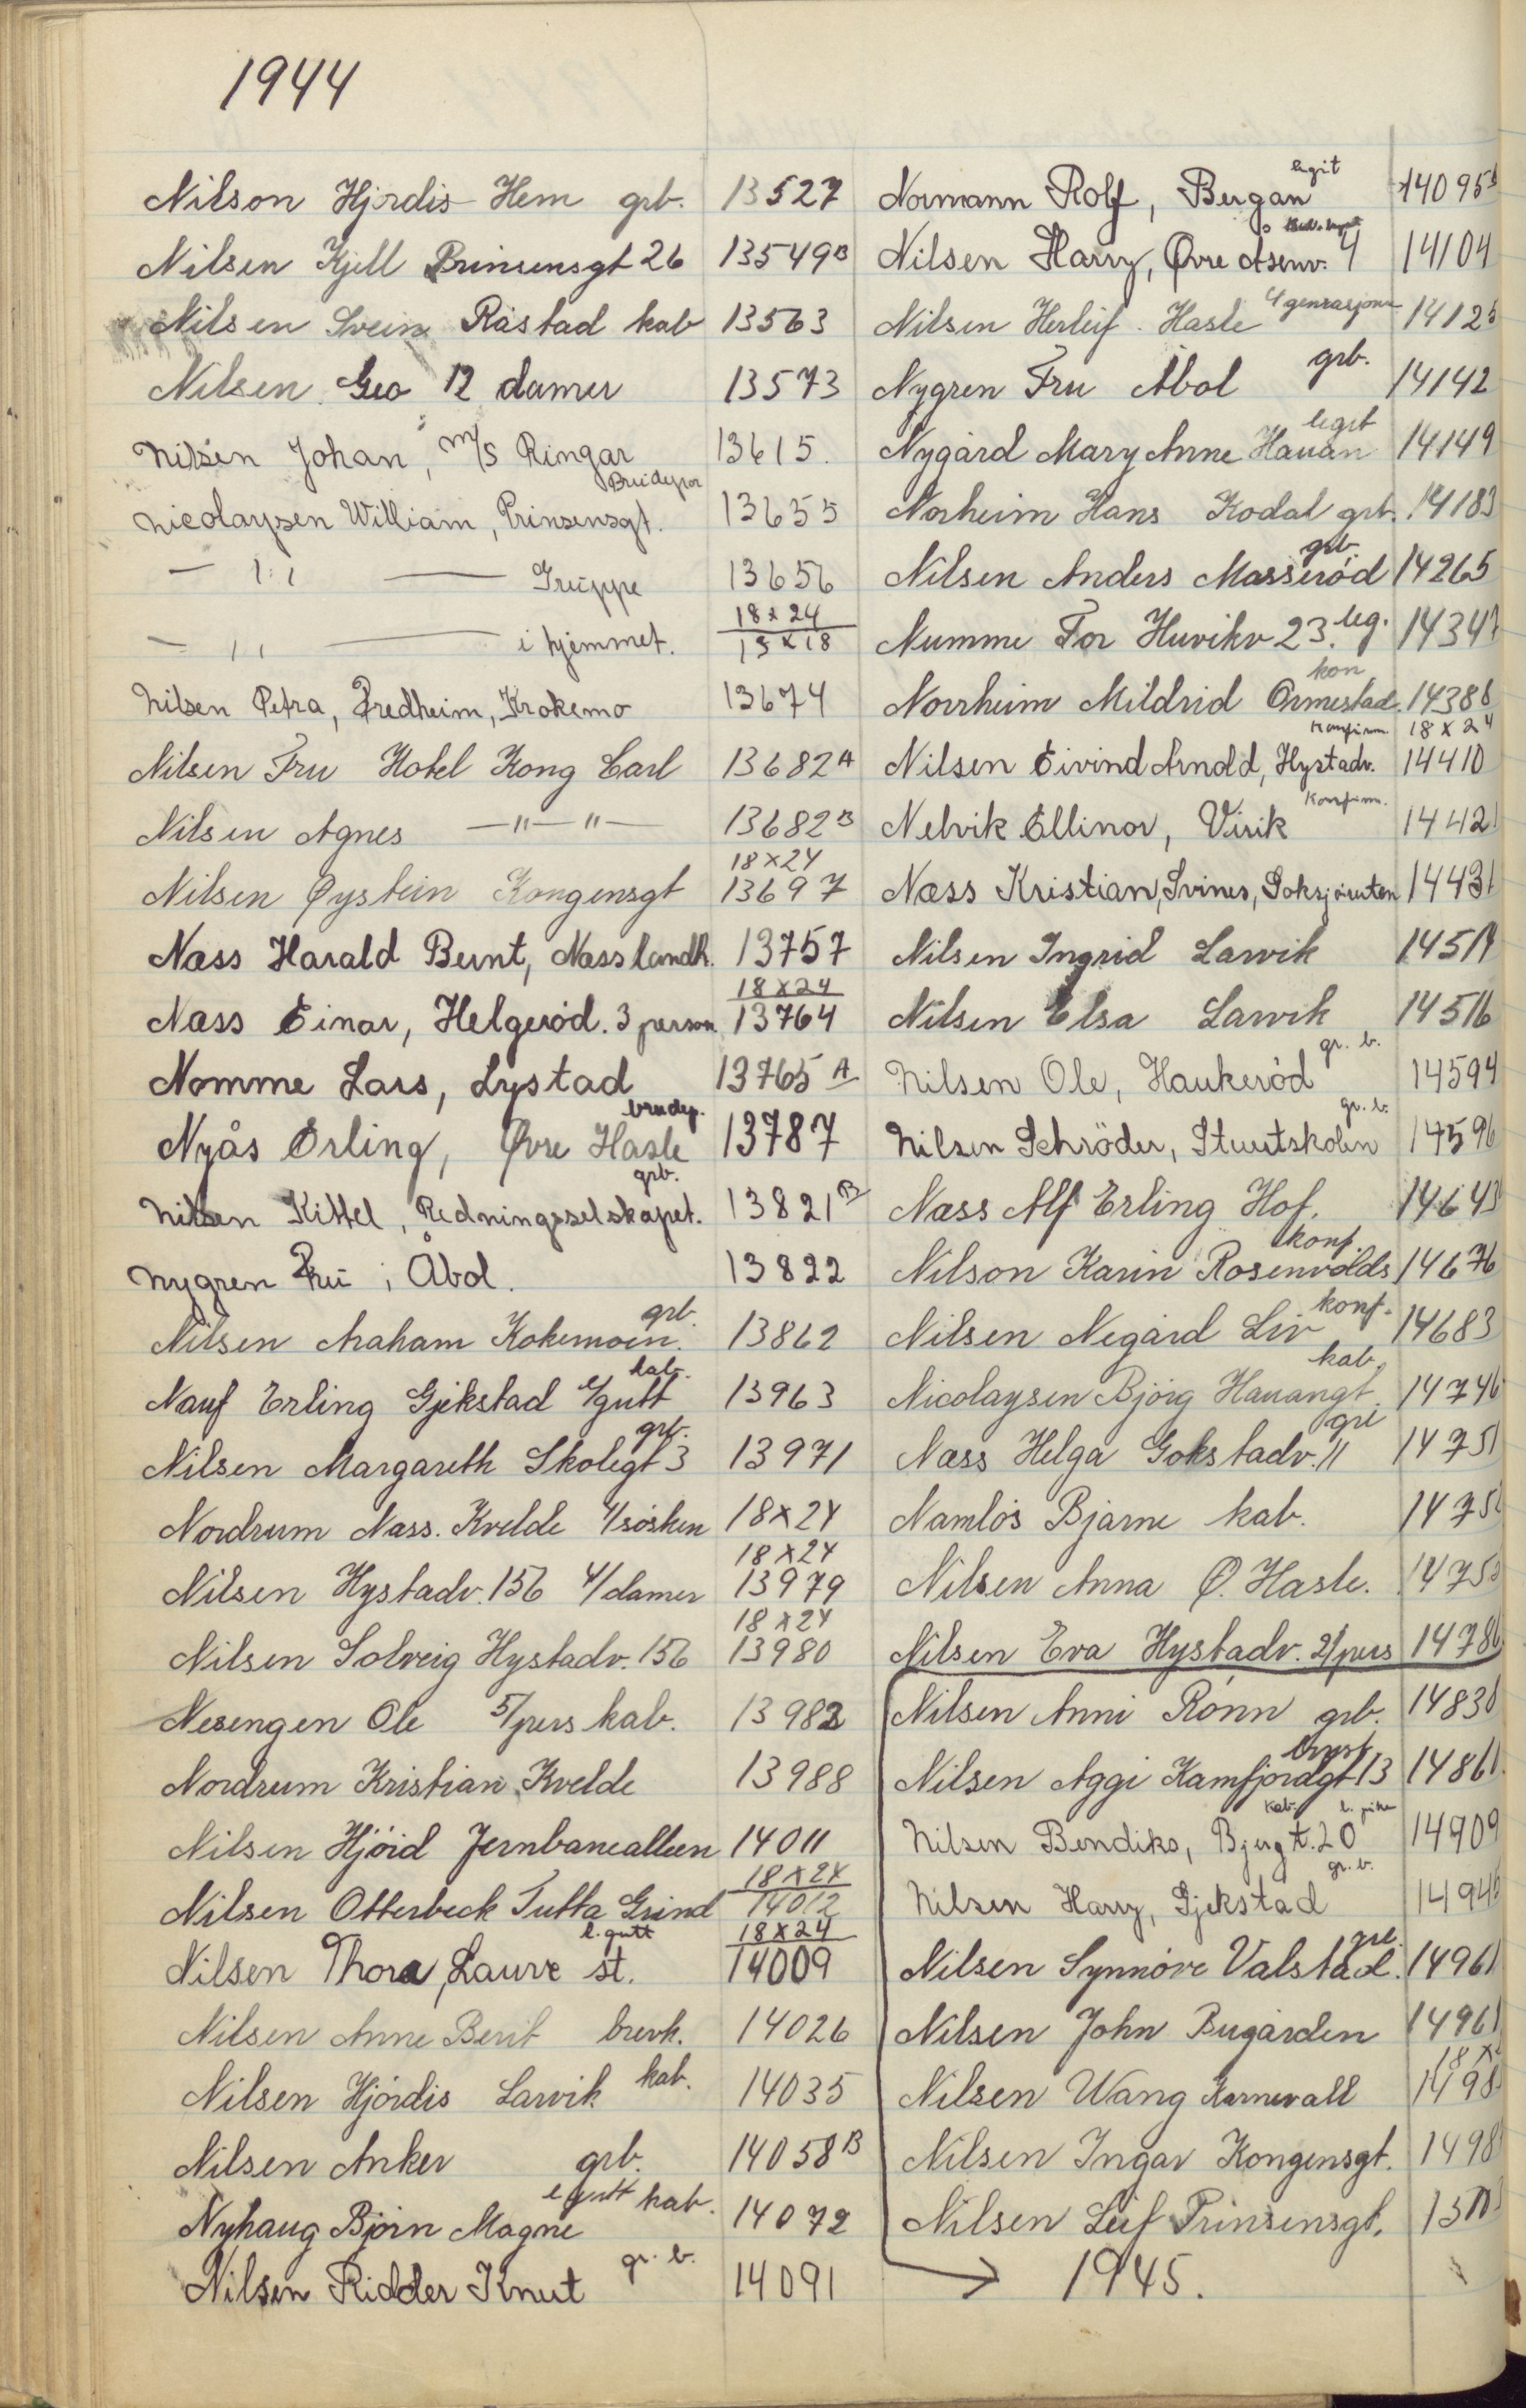 1944
Nilson Hjördis Hem grb. 13527
Nilsen Kjell Prinsensgt 26 13549B
Nilsen Svein Råstad kab 13563
Nilsen Geo 12 damer 13573
Nilsen Johan, m/s Ringar 13615.
Brudepar
Nicolaysen William, Prinsensgt. 13655
— " — Gruppe 13656
18 x 24
— " — i hjemmet. 13 x 18
Nilsen Petra, Fredheim, Krokemo 13674
Nilsen Fru Hotel Kong Carl 13682A
Nilsen Agnes —"—"— 13682B
18 x 24
Nilsen Øystein Kongensgt 13697
Næss Harald Bernt, Næss landh. 13757
18 x 24
Næss Einar, Helgeröd. 3 person 13764
Nomme Lars, Lystad 13765 A
brudep.
Nyås Erling, Øvre Hasle 13787
grb.
Nilsen Kittel, Redningsselskapet. 13821B
Nygren Fru, Åbol. 13822
grb.
Nilsen Araham Kokemoen. 13862
kab.
Nauf Erling Gjekstad l/gutt 13963
grb.
Nilsen Margareth Skolegt 3 13971
Nordrum Nass. Kvelde 4/søsken 18 x 24
18 x 24
Nilsen Hystadv. 156 4/damer 13979
18 x 24
Nilsen Solveig Hystadv. 156 13980
Nesengen Ole 5/pers kab. 13982
Nordrum Kristian Kvelde 13988
Nilsen Hjöid Jernbanealleen 14011
18 x 24
Nilsen Otterbeck Tutta Grind 14012
l. gutt 18 x 24
Nilsen Thora, Laurv st. 14009
Nilsen Anne Berit brevk. 14026
Nilsen Hjördis Larvik kab. 14035
Nilsen Anker grb. 14058B
l gutt kab.
Nyhaug Bjørn Magne 14072
gr. b.
Nilsen Ridder Knut 14091
legit
Normann Rolf, Bergan 14095
Nilsen Harry, Øvre Åsenv. 4 14104
Nilsen Herleif. Hasle 4 genrasjone 1412
grb.
Nygren Fru Åbol 14142
legit
Nygård Mary Anne Hauan 14149
Norheim Hans Kodal grb. 14183
grb
Nilsen Anders Masseröd 14265
Numme Tor Huvikv 23. leg. 1434
kon
Norrheim Mildrid Ormestad. 1438
Konfirm 18 x 24
Nilsen Eivind Arnold, Hystadv. 14410
Konfirm.
Nelvik Ellinor, Virik 1442
Næss Kristian, Svines, 1443
Nilsen Ingrid Larvik 1451
Nilsen Elsa Larvik 14516
gr. b.
Nilsen Ole, Haukeröd 14594
gr. b.
Nilsen Schröder, Stuertskolen 14596
Næss Alf Erling Hof. 14643
konf.
Nilson Karin Rosenvolds 14676
konf.
Nilsen Negård Liv 14683
kab.
Nicolaysen Bjørg Hauangt. 14746
grl
Næss Helga Gokstadv. 11 14751
Namløs Bjarne kab. 1475
Nilsen Anna Ø. Hasle. 1475
Nilsen Eva Hystadv. 2/pers 1478
Nilsen Anni Rønn grb. 1483
bryst
Nilsen Aggi Kamfjordgt 13 1486
kab. l. pike
Nilsen Bendiks, Bjergt. 20 14909
gr. b.
Nilsen Harry, Gjekstad 1494
grl.
Nilsen Synnøve Valstad. 1496
Nilsen John Bugården 1496
18 x
Nilsen Wang Karnevall 1498
Nilsen Ingar Kongensgt. 1498
Nilsen Leif Prinsensgt.
→ 1945.